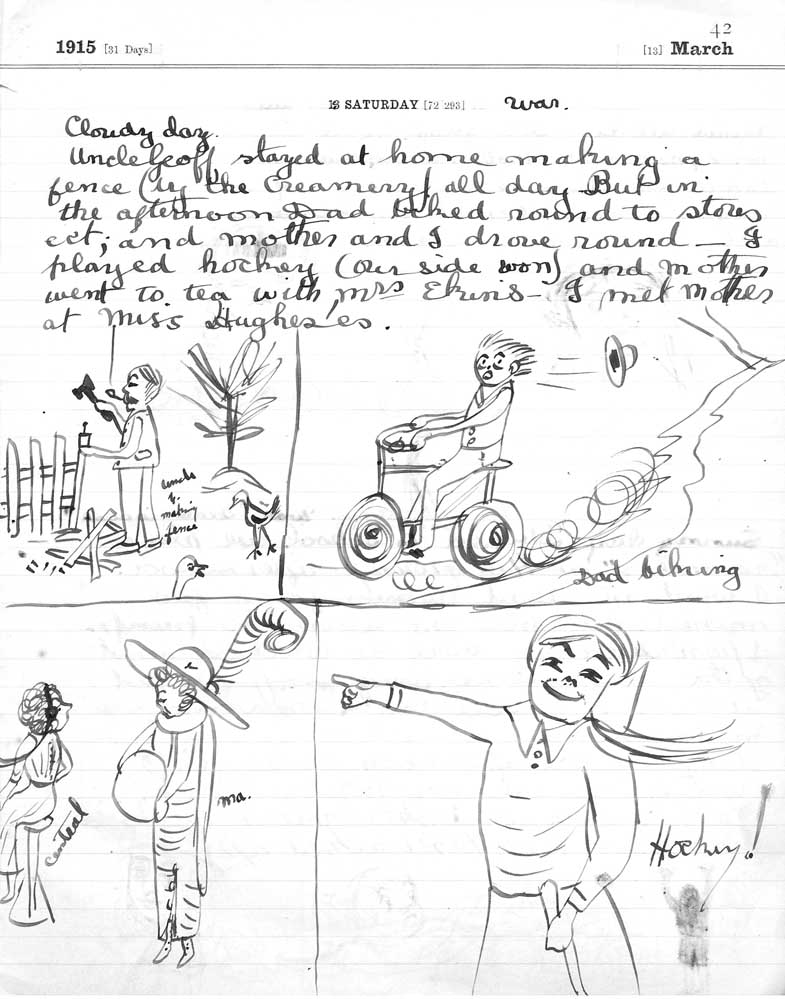 42
1915 [31 Days] [13] March
13 SATURDAY [72 293] war.
Cloudy day.
Uncle Geoff stayed at home making a
fence (by the Creamery) all day But in
the afternoon Dad biked round to stores
ect; and mother and I drove round — I
played hockey (our side won) and mother
went to tea with Mrs Ekins — I met Mother
at Miss Hughes'es.
uncle
G.
making
fence
Dad biking
Central
ma.
Hockey!